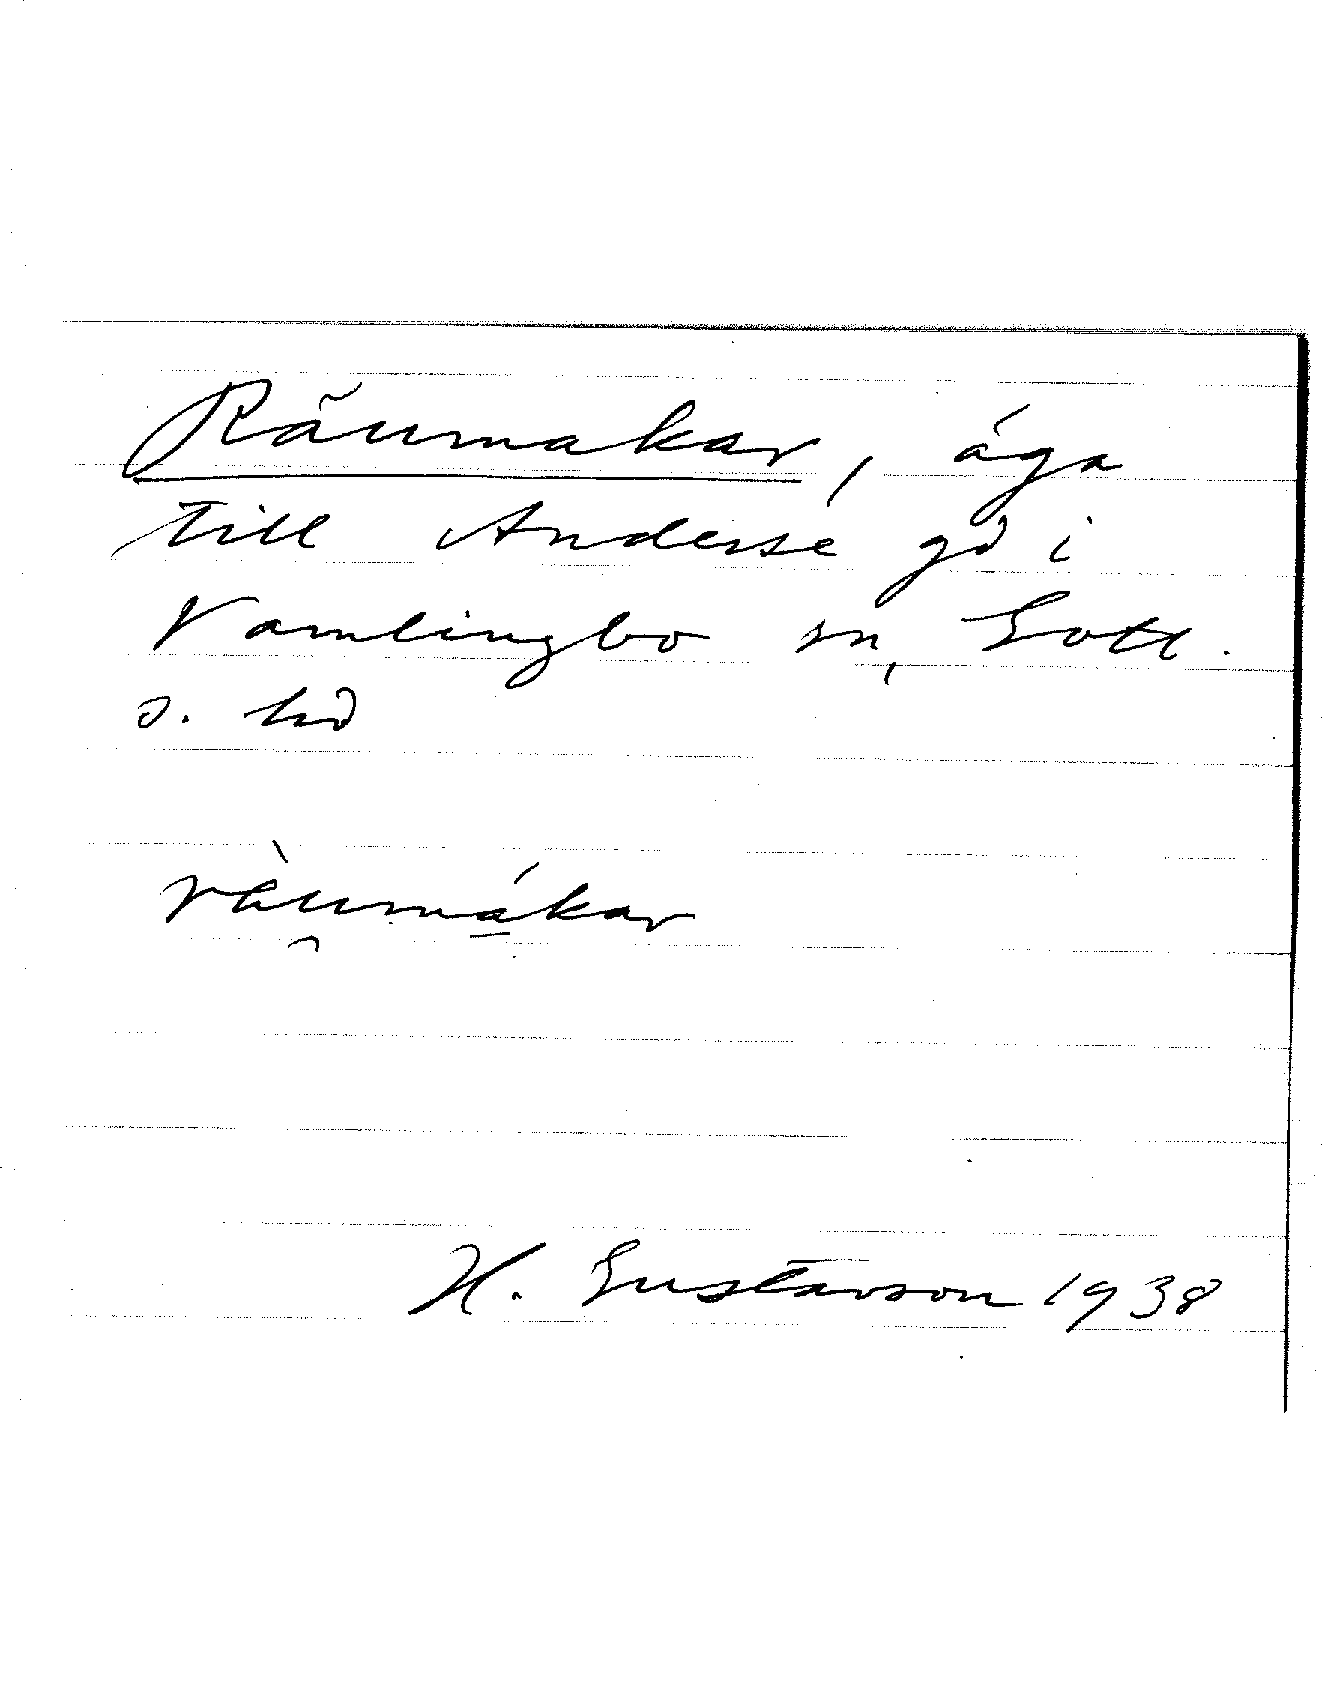 Räumakar, åga
till Anderse gd i
Vamlingbo sn, Gotl.
s. hd
ràumákar
H. Gustavson 1938